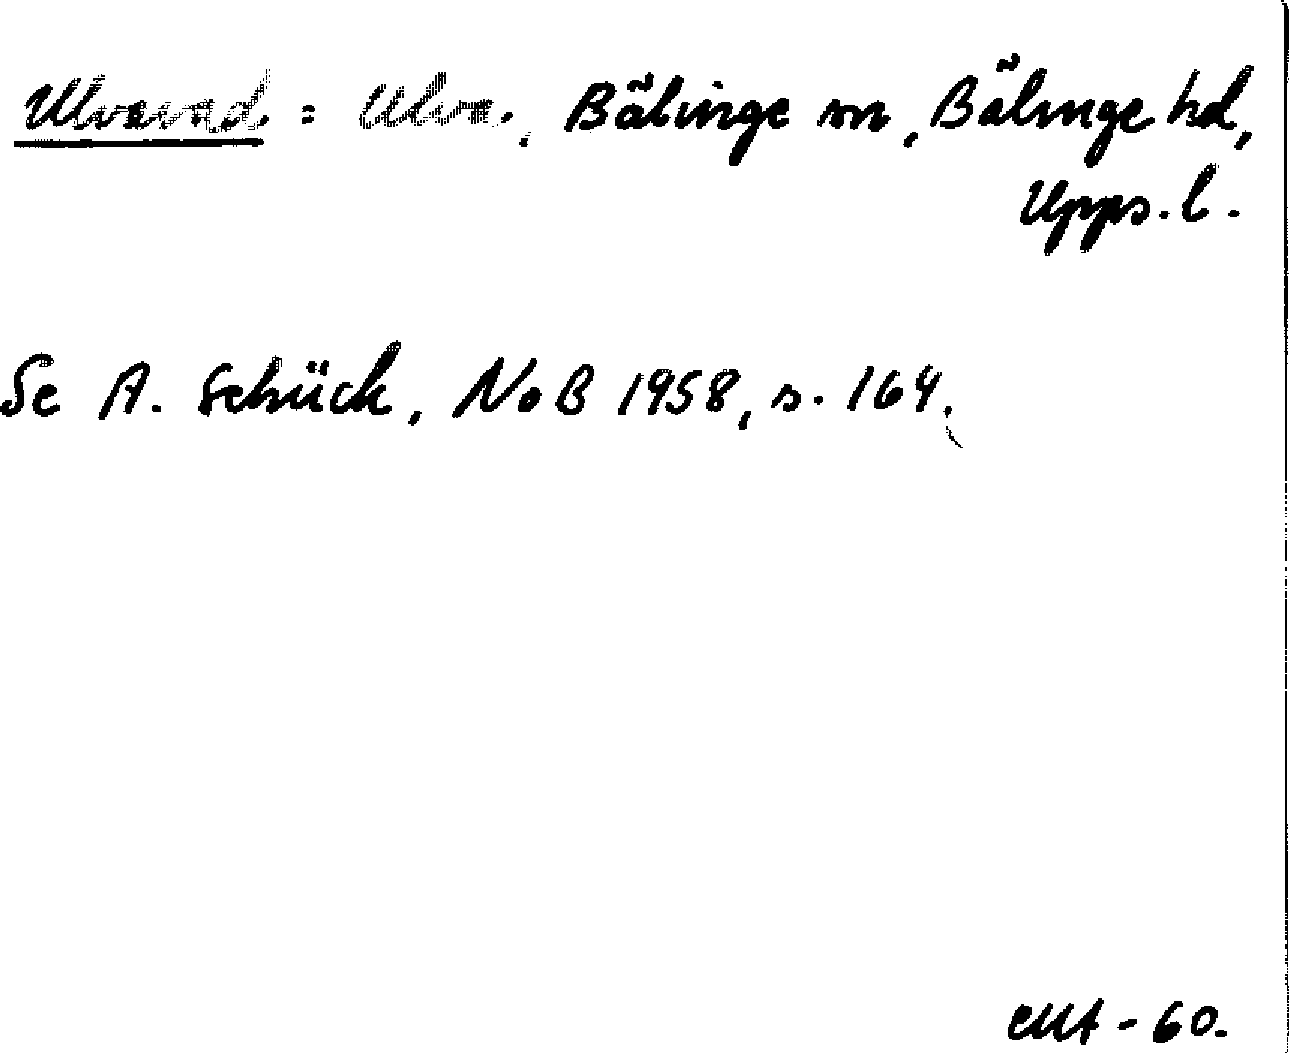 Ulvavad. = Ulva., Bälinge sn, Bälinge hd,
Upps. l.
Se A. Schück, NoB 1958, s. 164.
-60.